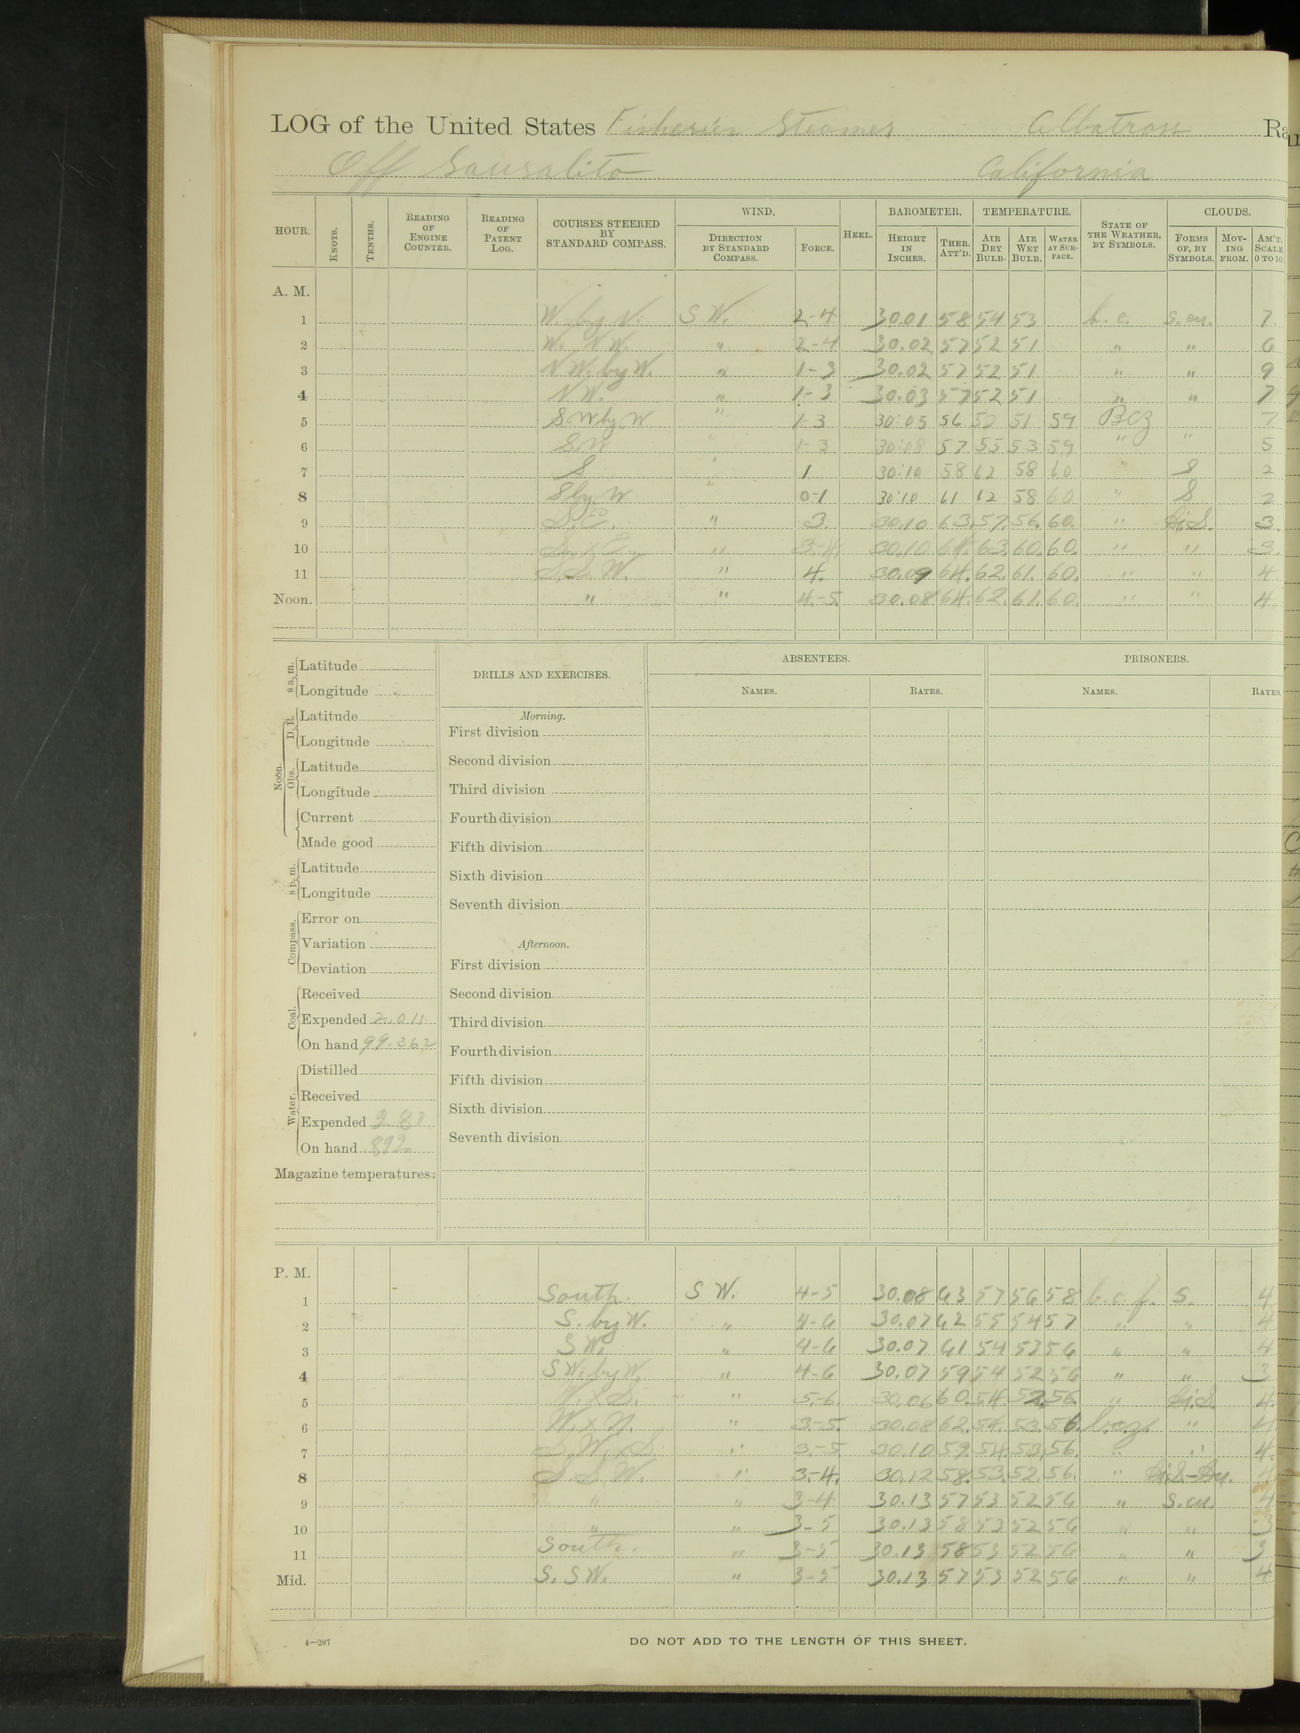 LOG of the United States Fisheries Steamer Albatross Ra
Off Sausalito California
HOUR. KNOTS. TENTHS. READING OF ENGINE COUNTER. READING OF PATENT LOG. COURSES STEERED BY STANDARD COMPASS. WIND. DIRECTION BY STANDARD COMPASS. FORCE. HEEL. BAROMETER. HEIGHT IN INCHES. THER. ATT'D. TEMPERATURE. AIR DRY BULB. AIR WET BULB. WATER AT SURFACE. STATE OF THE WEATHER, BY SYMBOLS. CLOUDS. FORMS OF, BY SYMBOLS. MOVING FROM. AM'T. SCALE 0 TO 10.
A. M.
1 W. by N. S W. 2-4 30.01 58 54 53 b. c. s.cu. 7
2 W. N W. " 2-4 30.02 57 52 51 " " 6
3 N W. by W. " 1-3 30.02 57 52 51 " " 9
4 N W. " 1-3 30.03 57 52 51 " " 7
5 S W by W " 1-3 30.05 56 52 51 59 Bcz 7
6 S W " 1-3 30.08 57 55 53 59 " " 5
7 S " 1 30.10 58 62 58 60 " S 2
8 S by W " 0-1 30.10 61 62 58 60 " S 2
9 S.E. " 3. 30.10 63. 57. 56. 60. " Ci.S. 3.
10 " 3-4. 30.10 64. 63. 60. 60. " " 3.
11 S.S.W. " 4. 30.09 64. 62. 61. 60. " " 4.
Noon. " " 4-5 30.08 64. 62. 61. 60. " " 4.
8 a. m. Latitude
Longitude
Noon. D. R. Latitude
Longitude
Obs. Latitude
Longitude
Current
Made good
8 p. m. Latitude
Longitude
Compass. Error on
Variation
Deviation
Coal. Received
Expended 2.011
On hand 99.362
Water. Distilled
Received
Expended 281
On hand 892
Magazine temperatures:
DRILLS AND EXERCISES.
Morning.
First division
Second division
Third division
Fourth division
Fifth division
Sixth division
Seventh division
Afternoon.
First division
Second division
Third division
Fourth division
Fifth division
Sixth division
Seventh division
ABSENTEES. PRISONERS.
NAMES. RATES. NAMES. RATES.
P. M.
1 South. S W. 4-5 30.08 63 57 56 58 b.c.f. S. 4
2 S. by W. " 4-6 30.07 62 55 54 57 " " 4
3 S.W. " 4-6 30.07 61 54 53 56 " " 4
4 S W. by W. " 4-6 30.07 59 54 52 56 " " 3
5 W.xS. " 5-6. 30.06 60. 54. 52. 56. " Ci.S. 4.
6 W.xN. " 3-5. 30.08 62. 54. 53. 56. b.c.z. " 4
7 S.W.xS. " 3-5 30.10 59. 54. 53. 56. " " 4.
8 S.S.W. " 3-4. 30.12 58. 53. 52. 56. " Ci.S-Cu. 4
9 " " 3-4 30.13 57 53 52 56 " S.cu. 4
10 " " 3-5 30.13 58 53 52 56 " " 3
11 South. " 3-5 30.13 58 53 52 56 " " 3
Mid. S. SW. " 3-5 30.13 57 53 52 56 " " 4
4—287 DO NOT ADD TO THE LENGTH OF THIS SHEET.